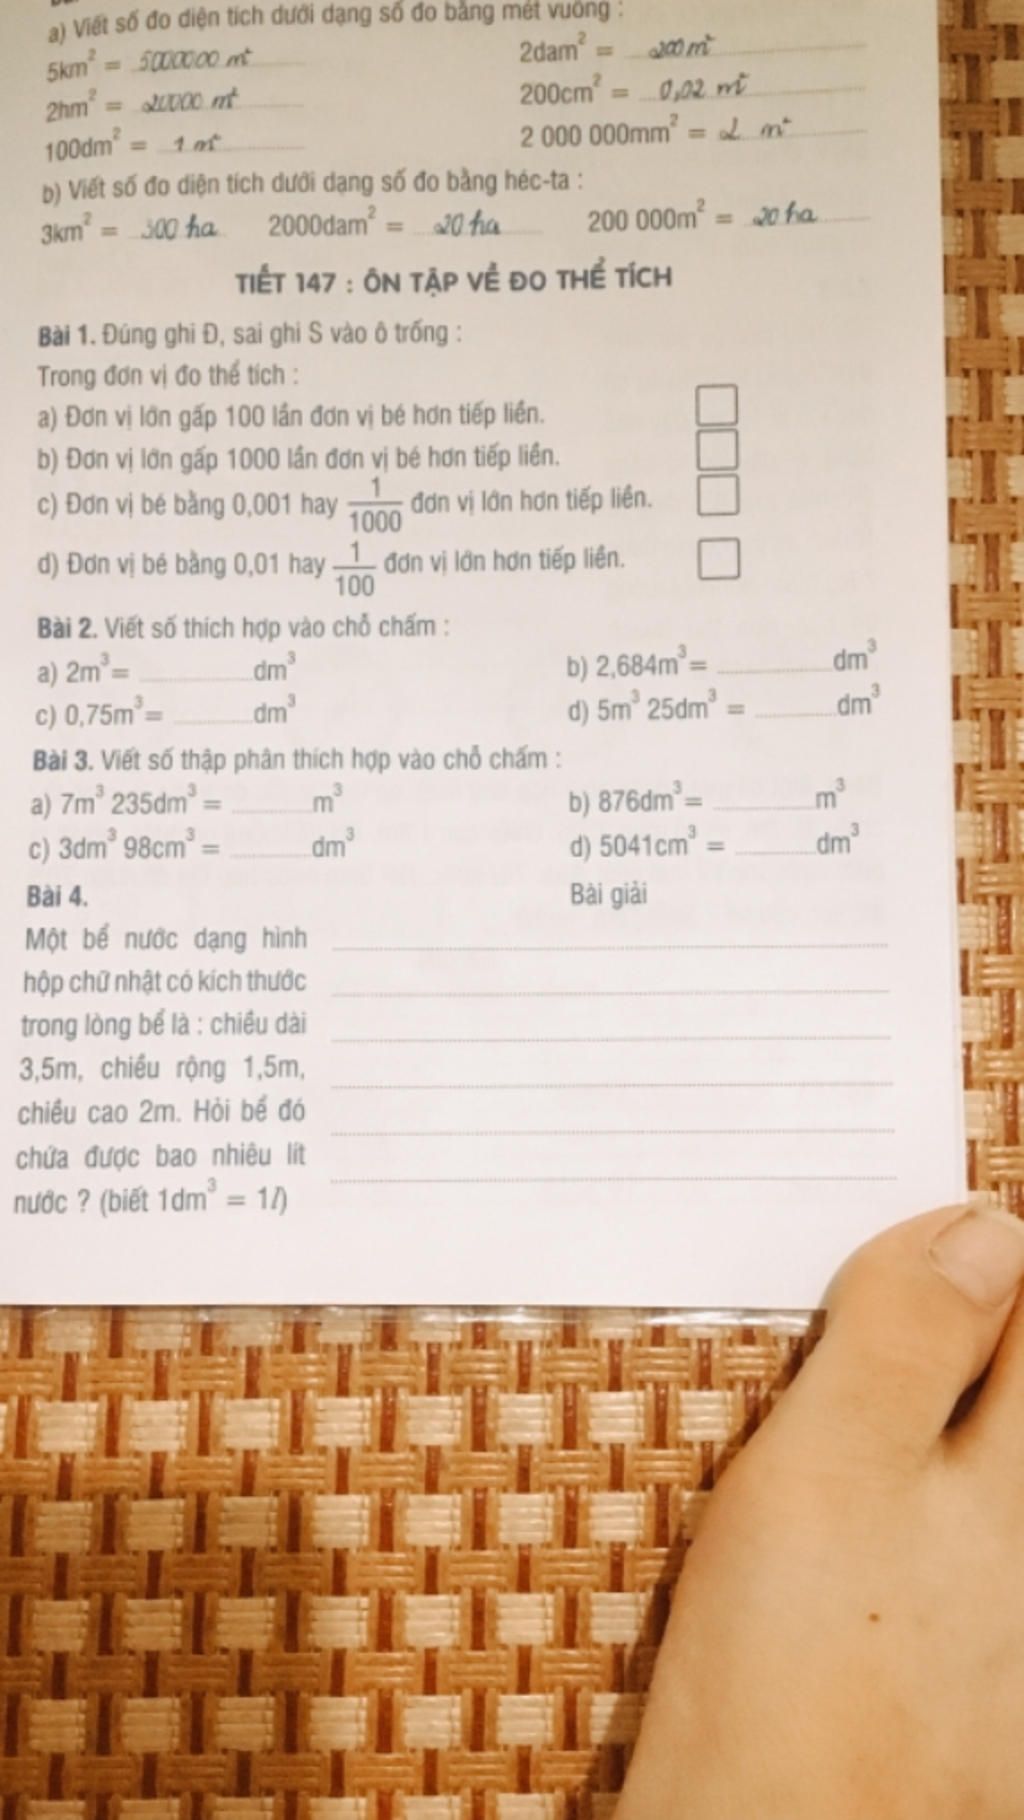 a) Viết số đo diện tích dưới dạng số đo bằng mét vuông :
5km² = 5000000 m² 2dam² = 200 m²
2hm² = 20000 m² 200cm² = 0,02 m²
100dm² = 1 m² 2 000 000mm² = 2 m²
b) Viết số đo diện tích dưới dạng số đo bằng héc-ta :
3km² = 300 ha 2000dam² = 20 ha 200 000m² = 20 ha
TIẾT 147 : ÔN TẬP VỀ ĐO THỂ TÍCH
Bài 1. Đúng ghi Đ, sai ghi S vào ô trống :
Trong đơn vị đo thể tích :
a) Đơn vị lớn gấp 100 lần đơn vị bé hơn tiếp liền.
b) Đơn vị lớn gấp 1000 lần đơn vị bé hơn tiếp liền.
c) Đơn vị bé bằng 0,001 hay 1/1000 đơn vị lớn hơn tiếp liền.
d) Đơn vị bé bằng 0,01 hay 1/100 đơn vị lớn hơn tiếp liền.
Bài 2. Viết số thích hợp vào chỗ chấm :
a) 2m³ = ............ dm³ b) 2,684m³ = ............ dm³
c) 0,75m³ = ............ dm³ d) 5m³ 25dm³ = ............ dm³
Bài 3. Viết số thập phân thích hợp vào chỗ chấm :
a) 7m³ 235dm³ = ............ m³ b) 876dm³ = ............ m³
c) 3dm³ 98cm³ = ............ dm³ d) 5041cm³ = ............ dm³
Bài 4. Bài giải
Một bể nước dạng hình
hộp chữ nhật có kích thước
trong lòng bể là : chiều dài
3,5m, chiều rộng 1,5m,
chiều cao 2m. Hỏi bể đó
chứa được bao nhiêu lít
nước ? (biết 1dm³ = 1l)